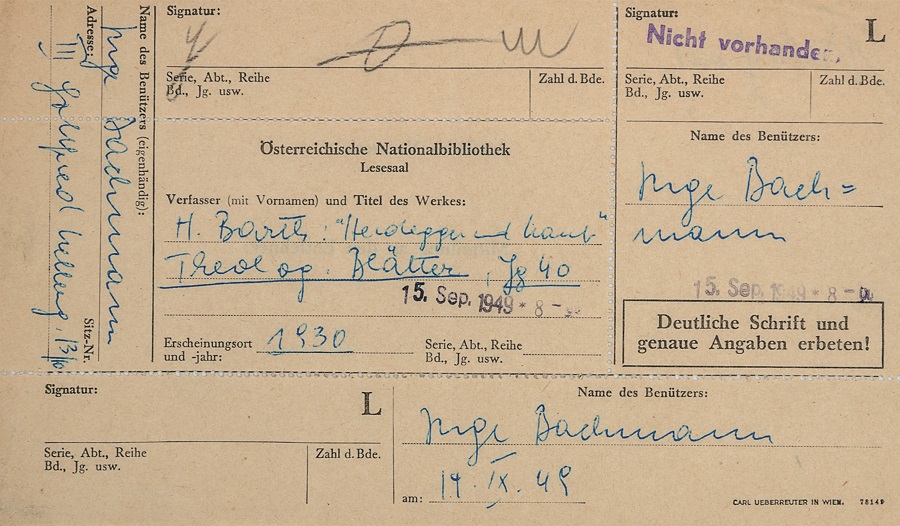 Name des Benützers (eigenhändig):
Inge Bachmann
Adresse:
III Gottfried Kellerg. 13/10
Sitz-Nr.
Signatur:
Serie, Abt., Reihe
Bd., Jg. usw.
Zahl d. Bde.
Österreichische Nationalbibliothek
Lesesaal
Verfasser (mit Vornamen) und Titel des Werkes:
H. Barth: "Heidegger und Kant"
Theolog. Blätter, Jg 40
15. Sep. 1949 * 8 -
Erscheinungsort
und -jahr:
1930
Serie, Abt., Reihe
Bd., Jg. usw.
Signatur:
L
Nicht vorhanden
Serie, Abt., Reihe
Bd., Jg. usw.
Zahl d. Bde.
Name des Benützers:
Inge Bach=
mann
15. Sep. 1949 * 8 -
Deutliche Schrift und
genaue Angaben erbeten!
Signatur:
L
Serie, Abt., Reihe
Bd., Jg. usw.
Zahl d. Bde.
Name des Benützers:
Inge Bachmann
am: 14. IX. 49
CARL UEBERREUTER IN WIEN. 78149